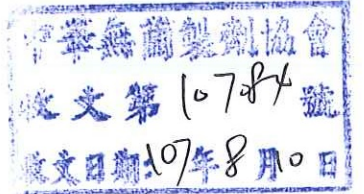 中華無菌製劑協會
收文第10784號
收文日期:107年8月10日